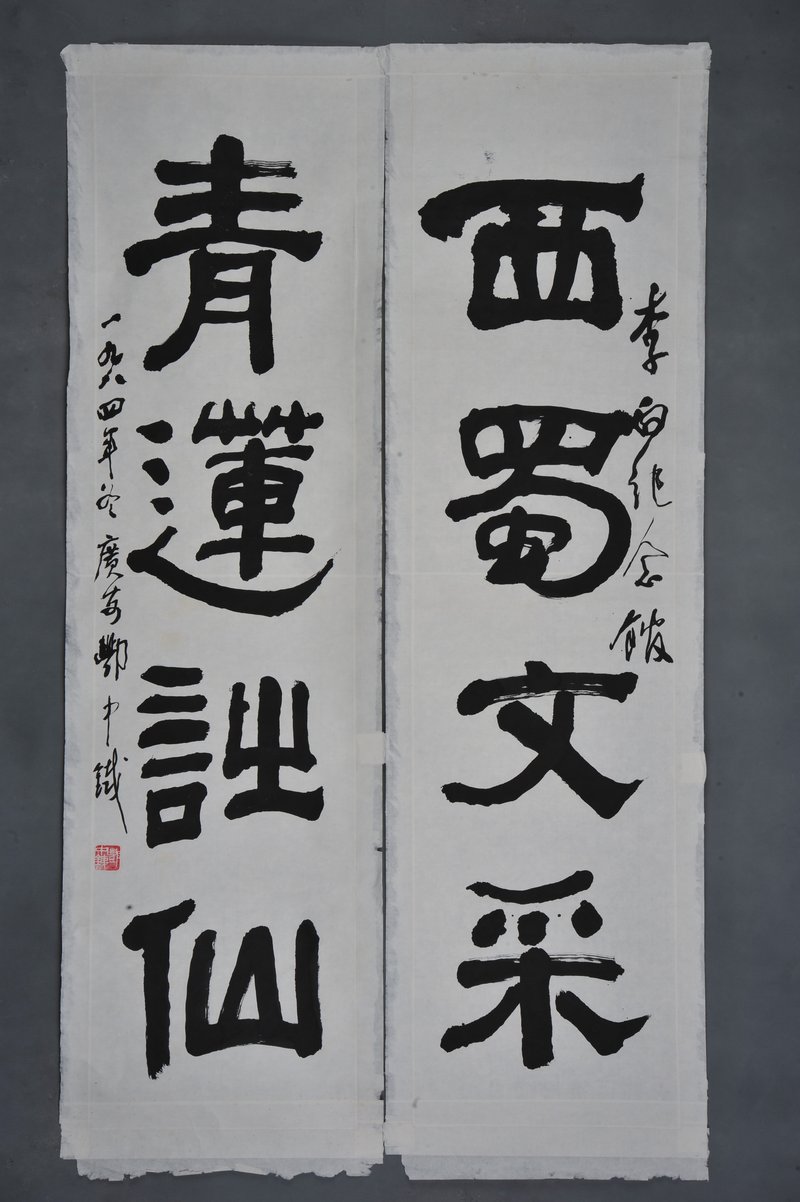 李白紀念館
西蜀文采
青蓮詩仙
一九八四年冬廣安酆中鐵